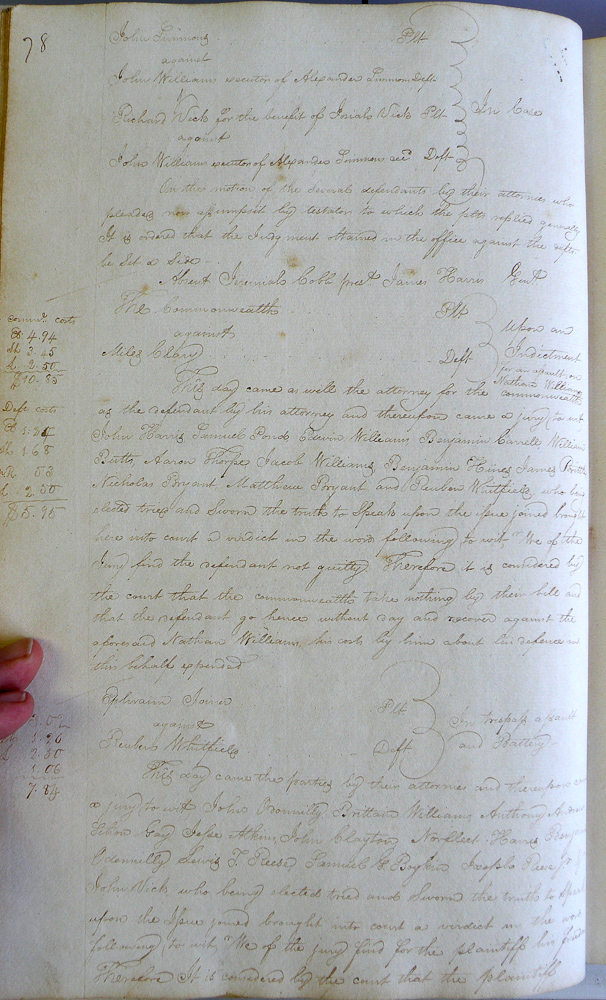 78
John Simmons Plt
against
John Williams executor of Alexander Simmons Deft
Richard Vick for the benefit of Josiah Vick Plt
In Case
against
John Williams executor of Alexander Simmons decd Deft
On the motion of the several defendants by their attornies who
pleaded non assumpsit by testator to which the plts replied generally
It is ordered that the Judgment obtained in the office against the defts
be Set a Side
Absent Jeremiah Cobb prest James Harris Gent
The Commonwealth Plt
against
Upon an
Indictment
for an assault on
Nathan Williams
Miles Clary Deft
Commo costs
4.94
3.45
2.50
10.85
This day came as well the attorney for the commonwealth
as the defendant by his attorney and thereupon came a jury to wit
Defts costs
John Harris Samuel Pond Edwin Williams Benjamin Carrell William
1.68
Butts Aaron Thorpe Jacob Williams Benjamin Hines James Britt
Nicholas Bryant Matthew Bryant and Reuben Whitfield who being
2.50
$5.95
elected tried and Sworn the truth to Speak upon the issue joined brought
here into court a virdict in the words following to wit "We of the
Jury find the defendant not guilty Therefore it is considered by
the court that the commonwealth take nothing by their bill and
that the defendant go hence without day and recover against the
aforesaid Nathan Williams his costs by him about his defence in
this behalf expended
Ephraim Plt
against
In trespass assault
and Battery
Reuben Whitfield Deft
.02
2.50
1.06
7.84
This day came the parties by their attornies and thereupon
a jury to wit John Brittain Williams Anthony
Gay Jesse Atkins John Clayton Norfleet Harris
Lewis T. Reese Samuel Boykin Joseph
John Vick who being elected tried and Sworn the truth to Speak
upon the Issue joined brought into court a virdict in the words
following to wit "We of the jury find for the plaintiff
Therefore It is considered by the court that the plaintiff